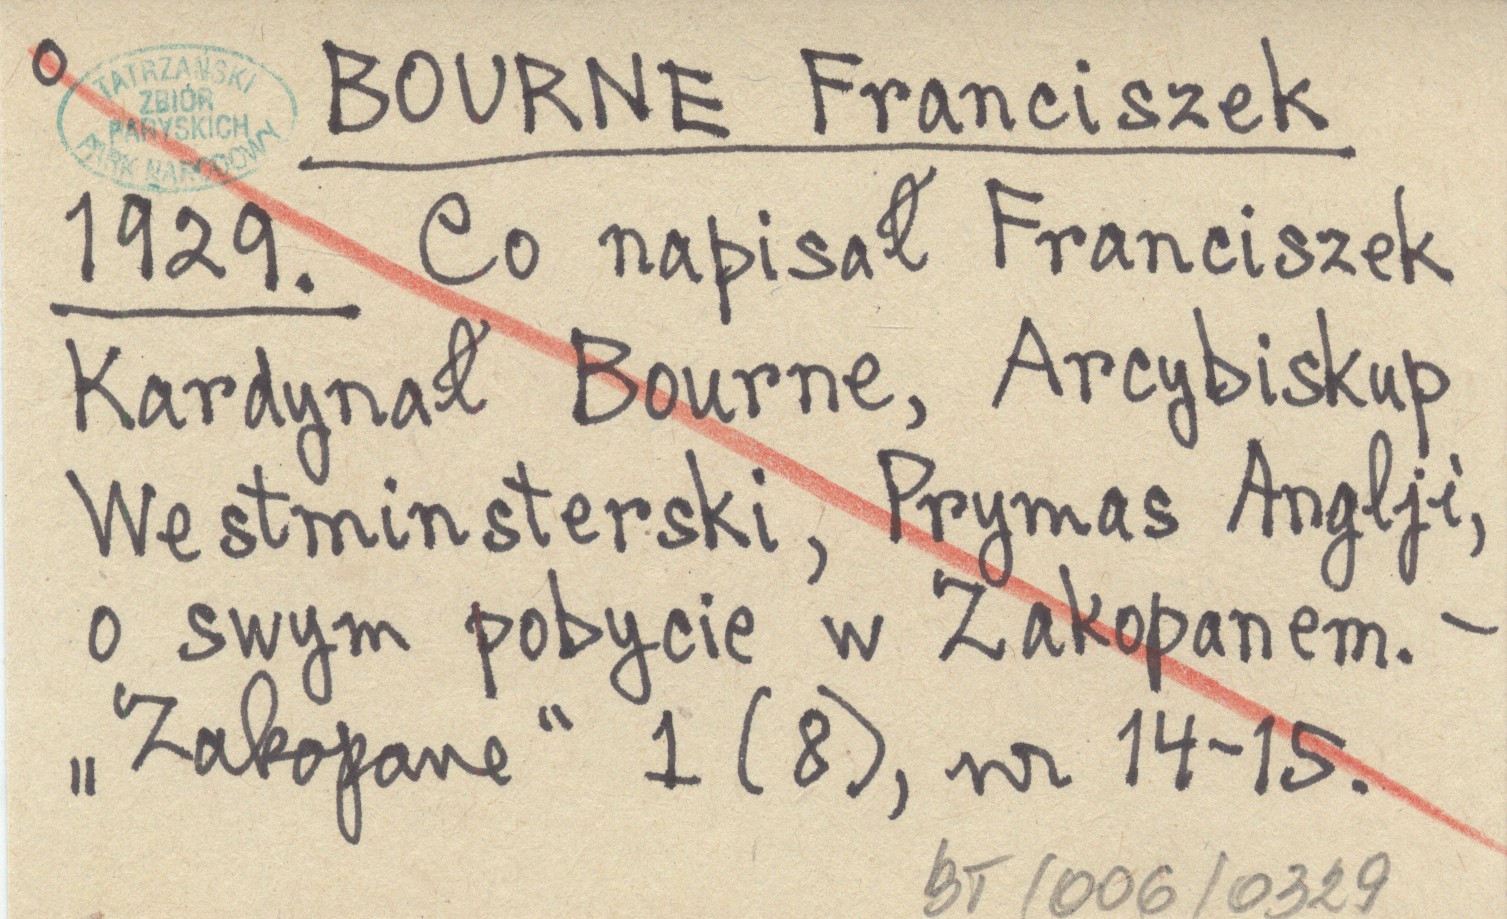 o
TATRZAŃSKI
ZBIÓR
PARYSKICH
PARK NARODOWY
BOURNE Franciszek
1929. Co napisał Franciszek
Kardynał Bourne, Arcybiskup
Westminsterski, Prymas Anglji,
o swym pobycie w Zakopanem. –
„Zakopane“ 1 (8), nr 14-15.
BT/006/0329